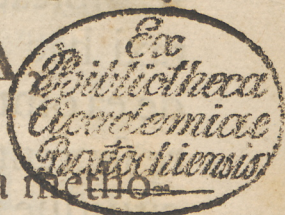 A
Ex
Bibliotheca
Academiae
Rostochiensis
a metho-